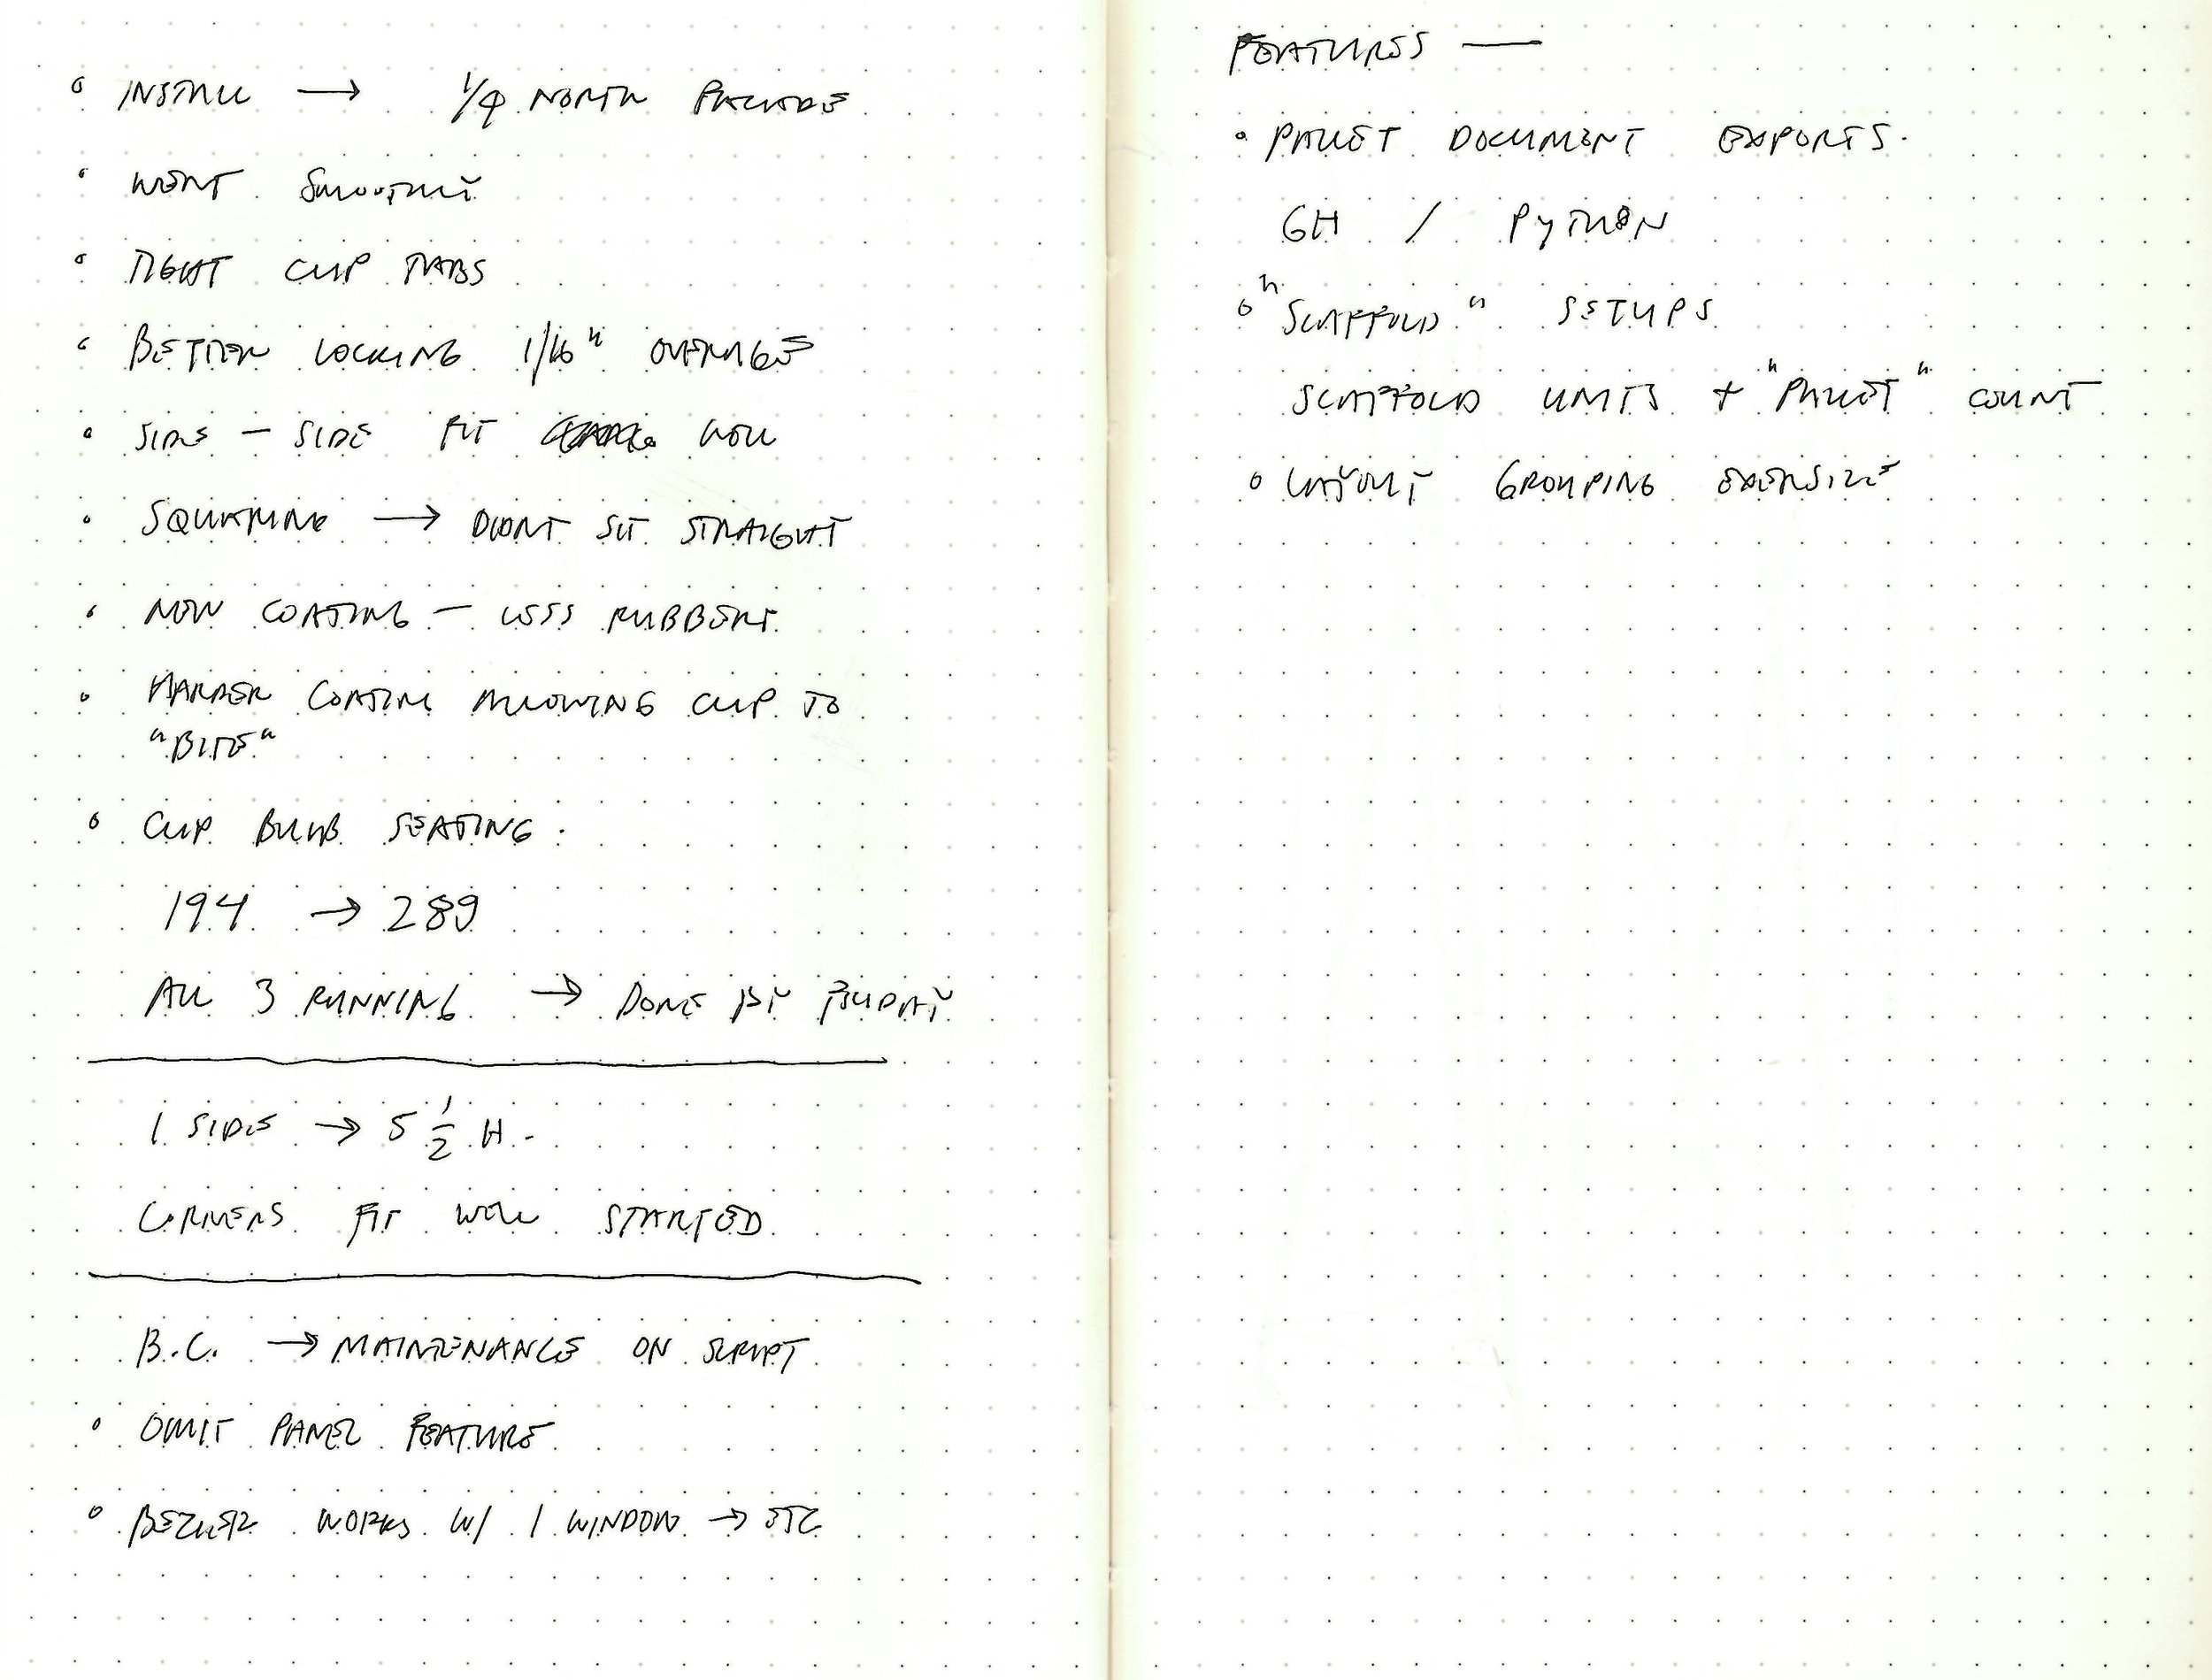 ° INSTALL → 1/4 NORTH FACADE
° WENT SMOOTHLY
° TIGHT CLIP TABS
° BETTER LOCKING 1/16" OVERAGE
° SIDE – SIDE FIT WELL
° SQUARING → DIDNT SIT STRAIGHT
° NEW COATING – LESS RUBBERY
° HARDER COATING ALLOWING CLIP TO
"BITE"
° CLIP BULB SEATING:
194 → 289
ALL 3 RUNNING → DONE BY FRIDAY
1 SIDE → 5 1/2 H.
CORNERS FIT WELL STARTED
B.C. → MAINTENANCE ON SCRIPT
° OMIT PANEL FEATURE
° WORKS W/ 1 WINDOW → ETC
FEATURES —
° PALLET DOCUMENT EXPORTS.
GH / PYTHON
° "SCAFFOLD" SETUPS
SCAFFOLD UNITS + "PALLET" COUNT
° LAYOUT GROUPING EXERSIZE